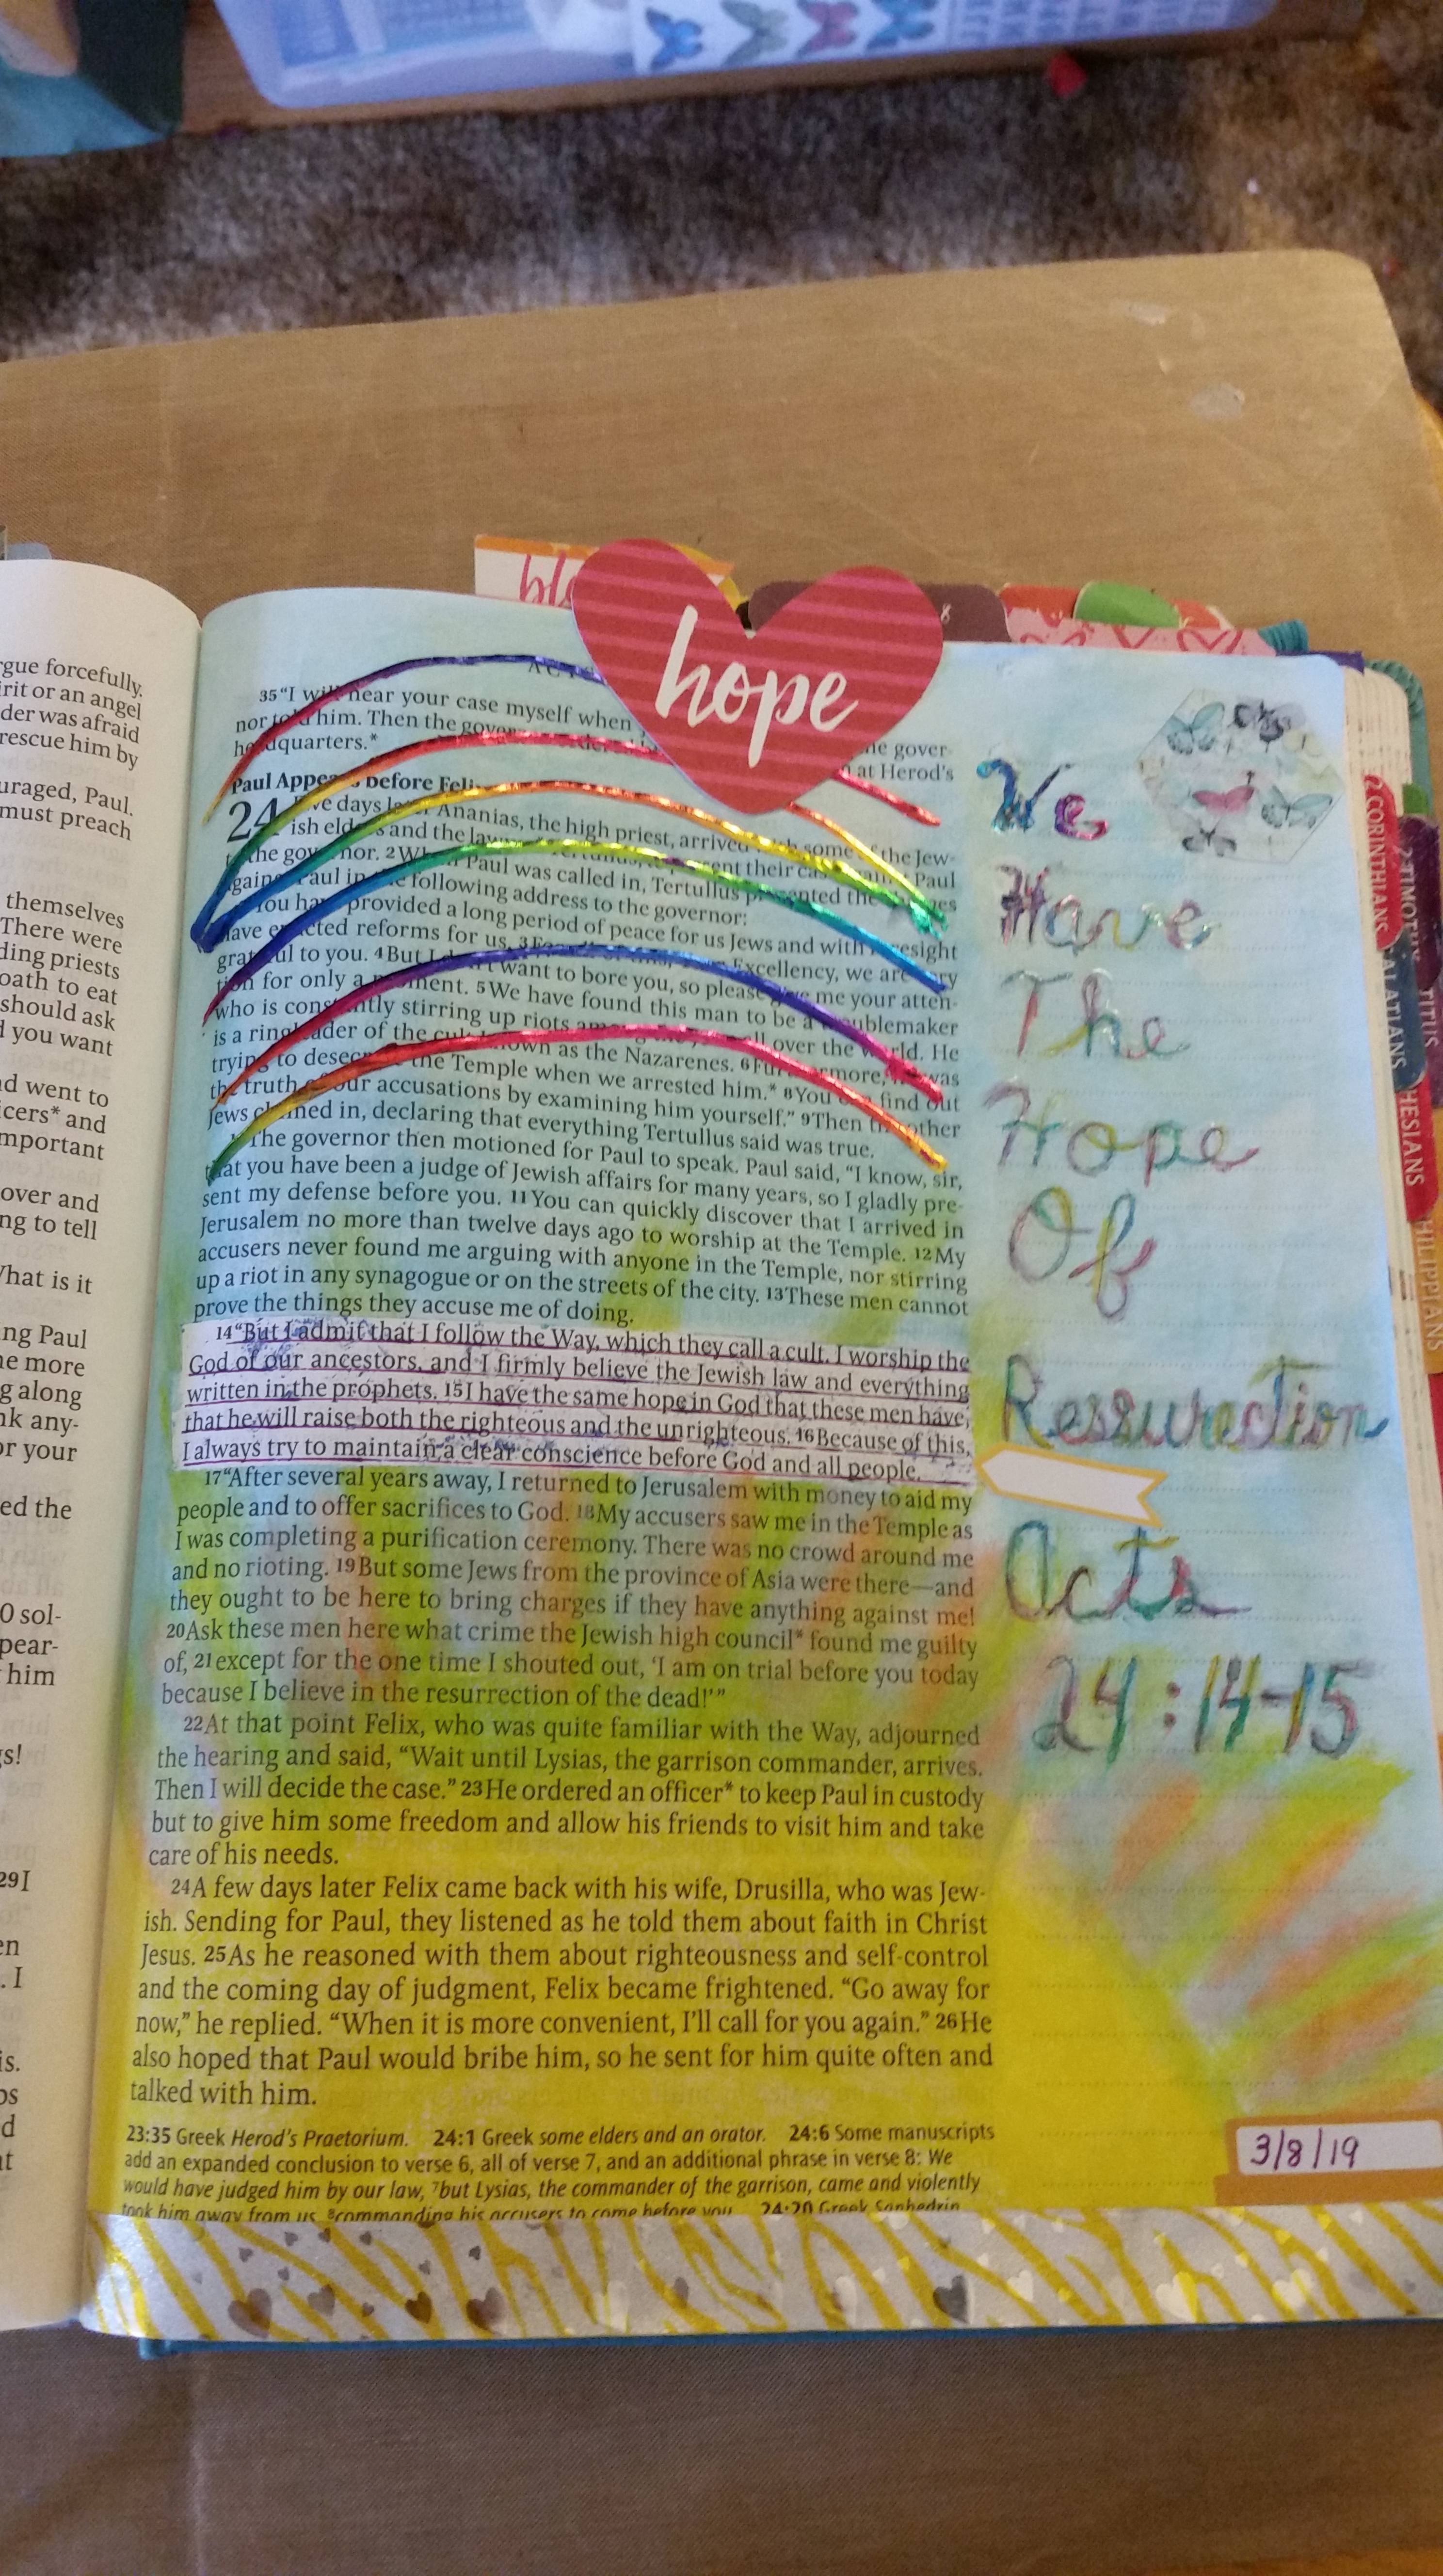 rgue forcefully.
rit or an angel
der was afraid
rescue him by
uraged, Paul.
must preach
themselves
There were
ding priests
oath to eat
should ask
d you want
nd went to
icers* and
mportant
over and
ng to tell
What is it
ng Paul
ne more
g along
nk any-
or your
ed the
0 sol-
pear-
him
gs!
29I
en
. I
is.
os
d
at
bl
hope
35"I will hear your case myself when
nor told him. Then the gover
he gover-
headquarters.*
at Herod's
Paul Appears before Feli
24 ve days later Ananias, the high priest, arrived with some of the Jew-
ish elders and the law
sent their case against Paul
to the governor. 2When Paul was called in, Tertullus presented the charges
against Paul in the following address to the governor:
"You have provided a long period of peace for us Jews and with foresight
have enacted reforms for us. 3For Excellency, we are very
grateful to you. 4But I don't want to bore you, so please give me your atten-
tion for only a moment. 5We have found this man to be a troublemaker
who is constantly stirring up riots among the all over the world. He
is a ringleader of the cult known as the Nazarenes. 6Furthermore, he was
trying to desecrate the Temple when we arrested him.* 8You can find out
the truth of our accusations by examining him yourself." 9Then the other
Jews chimed in, declaring that everything Tertullus said was true.
The governor then motioned for Paul to speak. Paul said, "I know, sir,
that you have been a judge of Jewish affairs for many years, so I gladly pre-
sent my defense before you. 11You can quickly discover that I arrived in
Jerusalem no more than twelve days ago to worship at the Temple. 12My
accusers never found me arguing with anyone in the Temple, nor stirring
up a riot in any synagogue or on the streets of the city. 13These men cannot
prove the things they accuse me of doing.
14"But I admit that I follow the Way, which they call a cult. I worship the
God of our ancestors, and I firmly believe the Jewish law and everything
written in the prophets. 15I have the same hope in God that these men have,
that he will raise both the righteous and the unrighteous. 16Because of this,
I always try to maintain a clear conscience before God and all people.
17"After several years away, I returned to Jerusalem with money to aid my
people and to offer sacrifices to God. 18My accusers saw me in the Temple as
I was completing a purification ceremony. There was no crowd around me
and no rioting. 19But some Jews from the province of Asia were there—and
they ought to be here to bring charges if they have anything against me!
20Ask these men here what crime the Jewish high council* found me guilty
of, 21except for the one time I shouted out, 'I am on trial before you today
because I believe in the resurrection of the dead!'"
22At that point Felix, who was quite familiar with the Way, adjourned
the hearing and said, "Wait until Lysias, the garrison commander, arrives.
Then I will decide the case." 23He ordered an officer* to keep Paul in custody
but to give him some freedom and allow his friends to visit him and take
care of his needs.
24A few days later Felix came back with his wife, Drusilla, who was Jew-
ish. Sending for Paul, they listened as he told them about faith in Christ
Jesus. 25As he reasoned with them about righteousness and self-control
and the coming day of judgment, Felix became frightened. "Go away for
now," he replied. "When it is more convenient, I'll call for you again." 26He
also hoped that Paul would bribe him, so he sent for him quite often and
talked with him.
23:35 Greek Herod's Praetorium. 24:1 Greek some elders and an orator. 24:6 Some manuscripts
add an expanded conclusion to verse 6, all of verse 7, and an additional phrase in verse 8: We
would have judged him by our law, 7but Lysias, the commander of the garrison, came and violently
took him away from us, 8commanding his accusers to come before you. 24:20 Greek Sanhedrin.
We
Have
The
Hope
Of
Ressurection
Acts
24:14-15
3/8/19
2 CORINTHIANS
GALATIANS
HESIANS
2 TIMOTHY
TITUS
HILIPPIANS